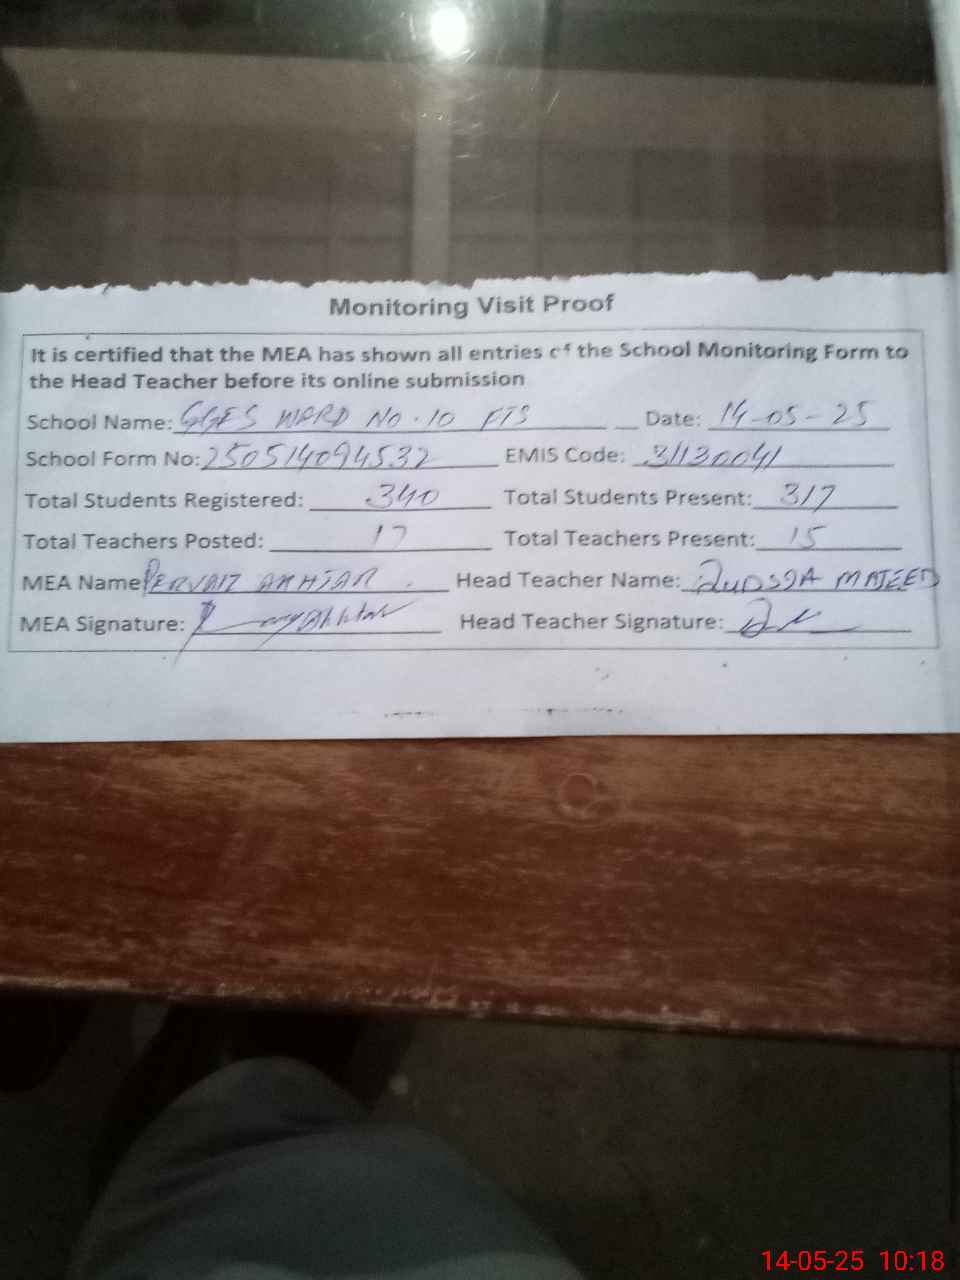 Monitoring Visit Proof
It is certified that the MEA has shown all entries of the School Monitoring Form to
the Head Teacher before its online submission
School Name: GGES WARD NO. 10 FTS Date: 14-05-25
School Form No: 250514094532 EMIS Code: 31130041
Total Students Registered: 340 Total Students Present: 317
Total Teachers Posted: 17 Total Teachers Present: 15
MEA Name PERVAIZ AKHTAR. Head Teacher Name: QUDSIA MAJEED
MEA Signature: Head Teacher Signature:
14-05-25 10:18